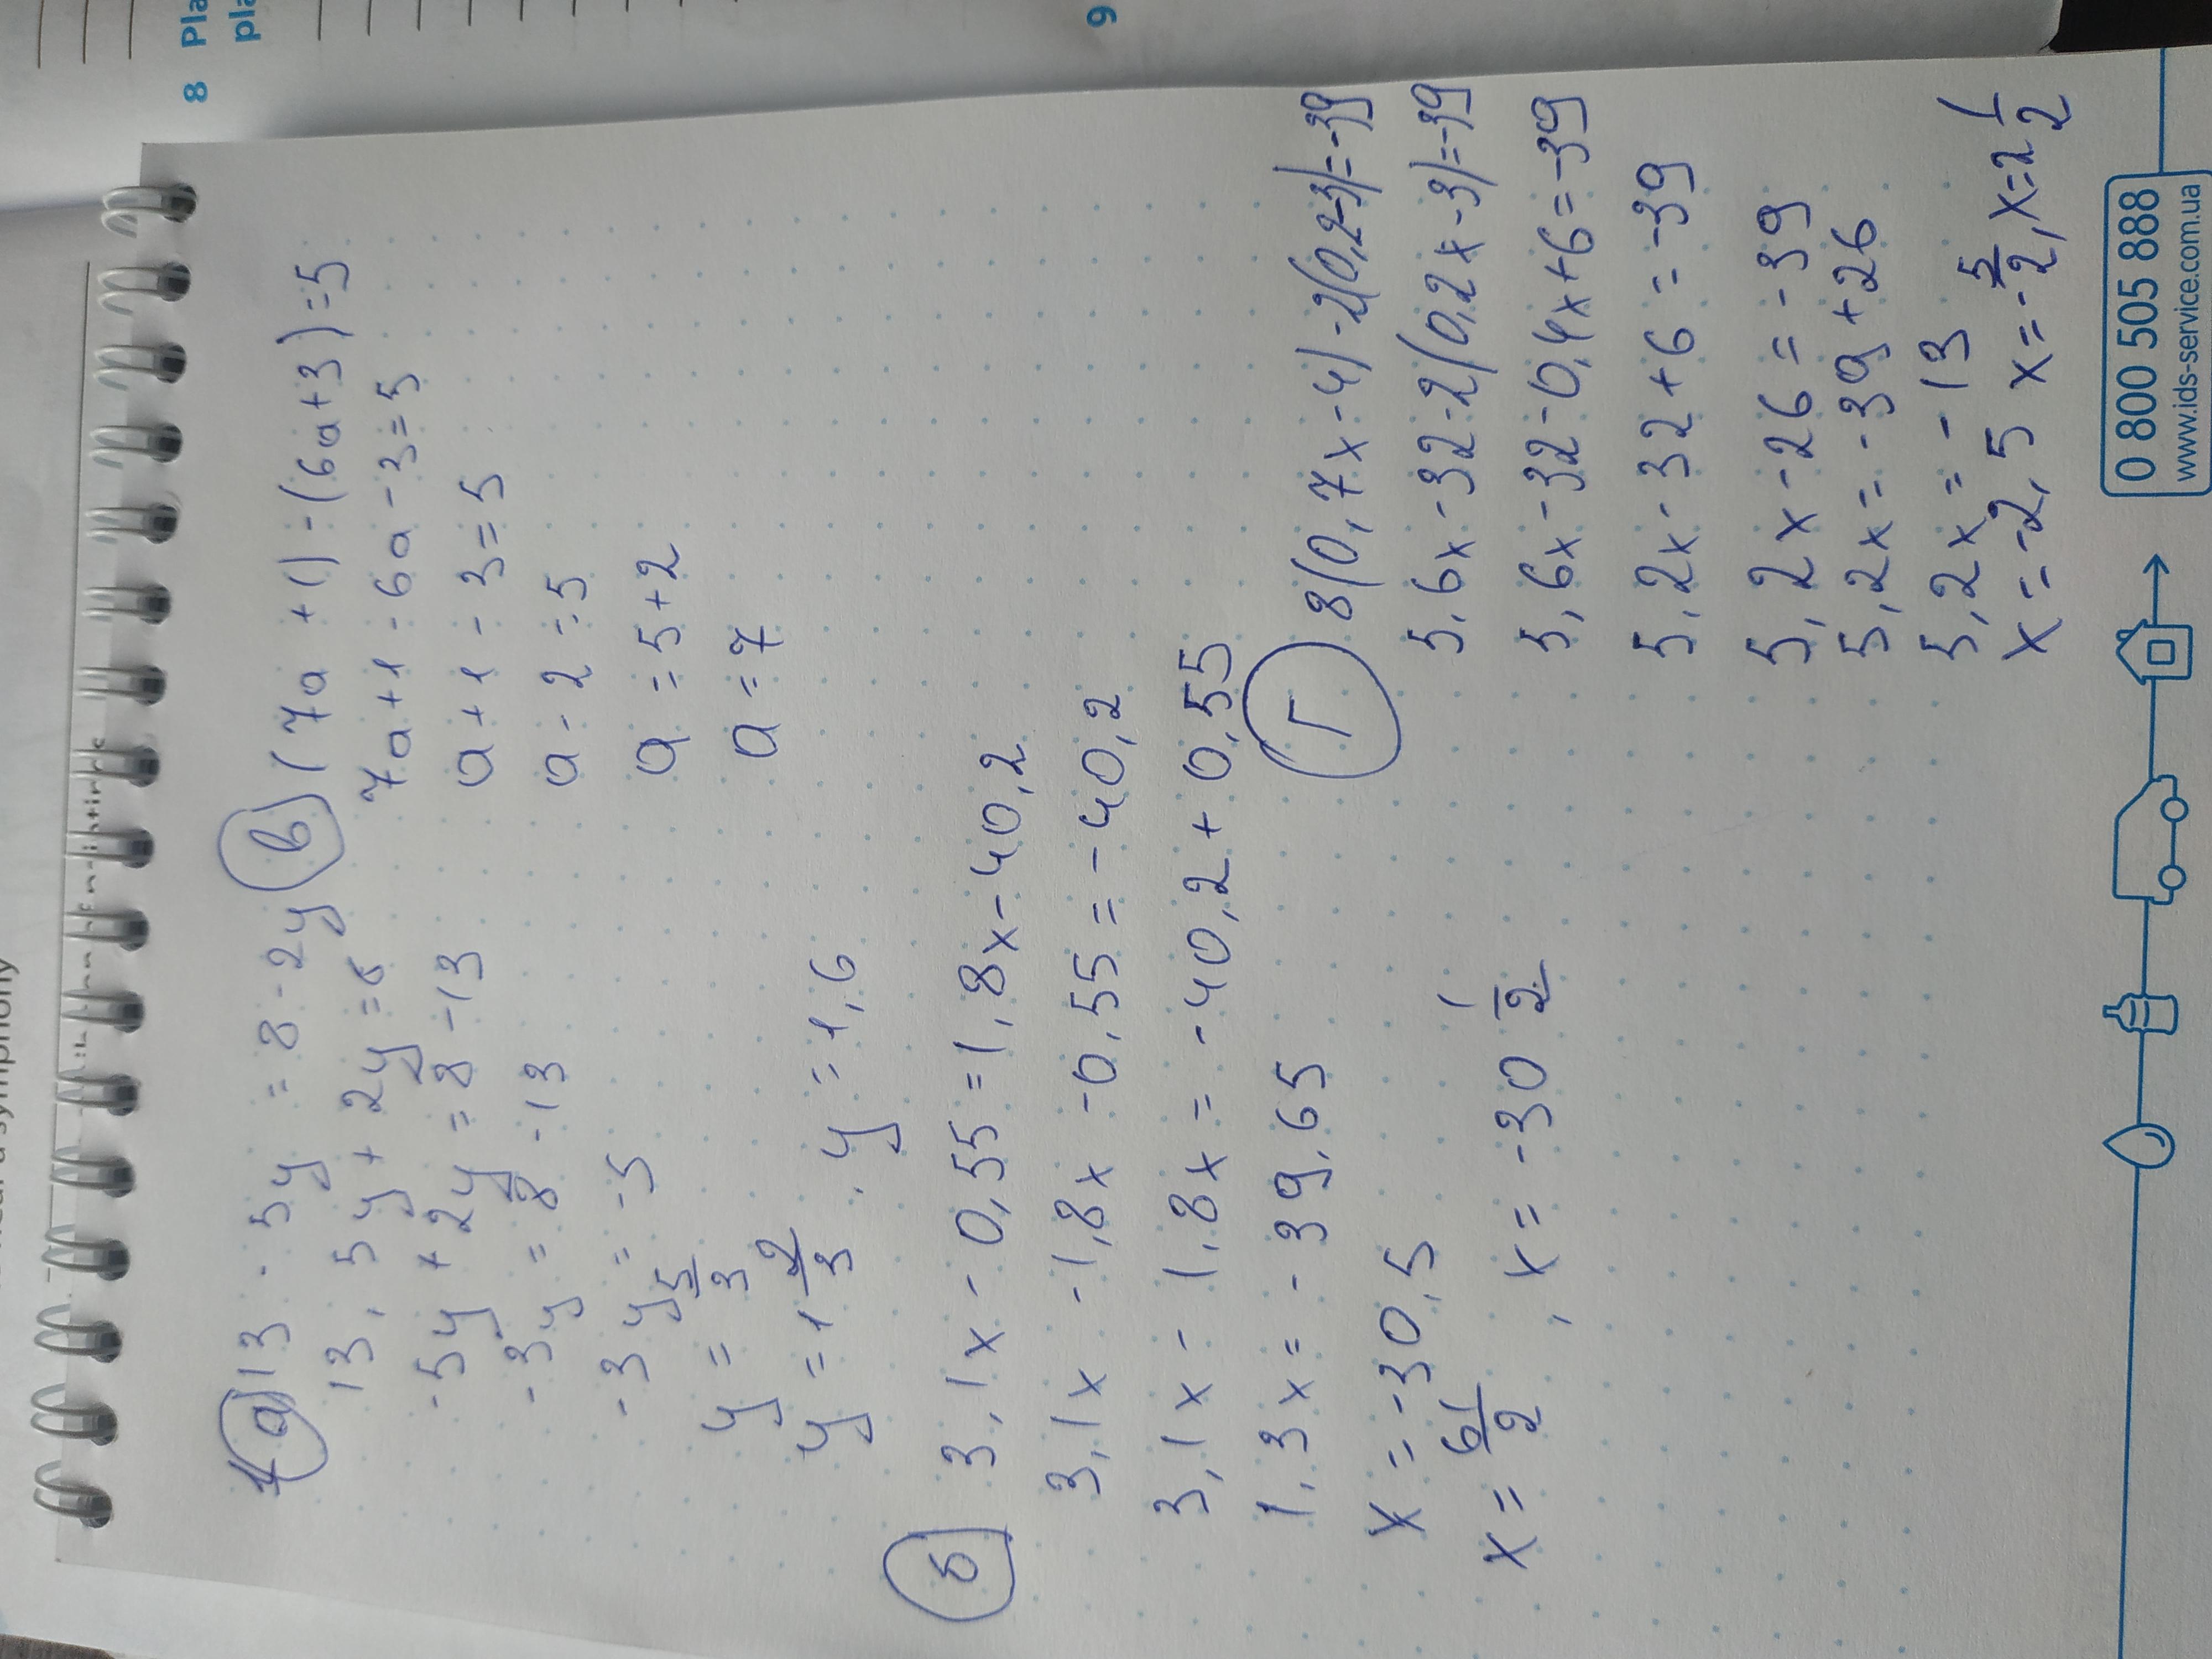 8 Pla
pla
9
1 а) 13 - 5y = 8 - 2y
13 - 5y + 2y = 8
-5y + 2y = 8 - 13
-3y = 8 - 13
-3y = -5
y = 5/3
y = 1 2/3 . y = 1,6
б) 3,1x - 0,55 = 1,8x - 40,2
3,1x - 1,8x - 0,55 = -40,2
3,1x - 1,8x = -40,2 + 0,55
1,3x = -39,65
x = -30,5
x = 61/2 , x = -30 1/2
в) (7a + 1) - (6a + 3) = 5
7a + 1 - 6a - 3 = 5
a + 1 - 3 = 5
a - 2 = 5
a = 5 + 2
a = 7
Г) 8(0,7x - 4) - 2(0,2-3) = -39
5,6x - 32 - 2(0,2x - 3) = -39
5,6x - 32 - 0,4x + 6 = -39
5,2x - 32 + 6 = -39
5,2x - 26 = -39
5,2x = -39 + 26
5,2x = -13
x = -2,5 x = -5/2, x = 2 1/2
0 800 505 888
www.ids-service.com.ua